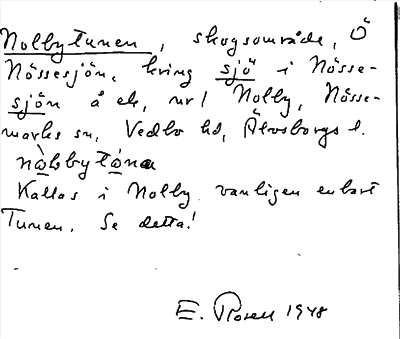 Nolbytunen, skogsområde, Ö
Nössesjön, kring sjö i Nösse-
sjön å ek, nr 1 Nolby, Nösse-
marks sn, Vedbo hd, Älvsborgs l.
Kallas i Nolby vanligen enbart
Tunen. Se detta!
E. Rosell 1948